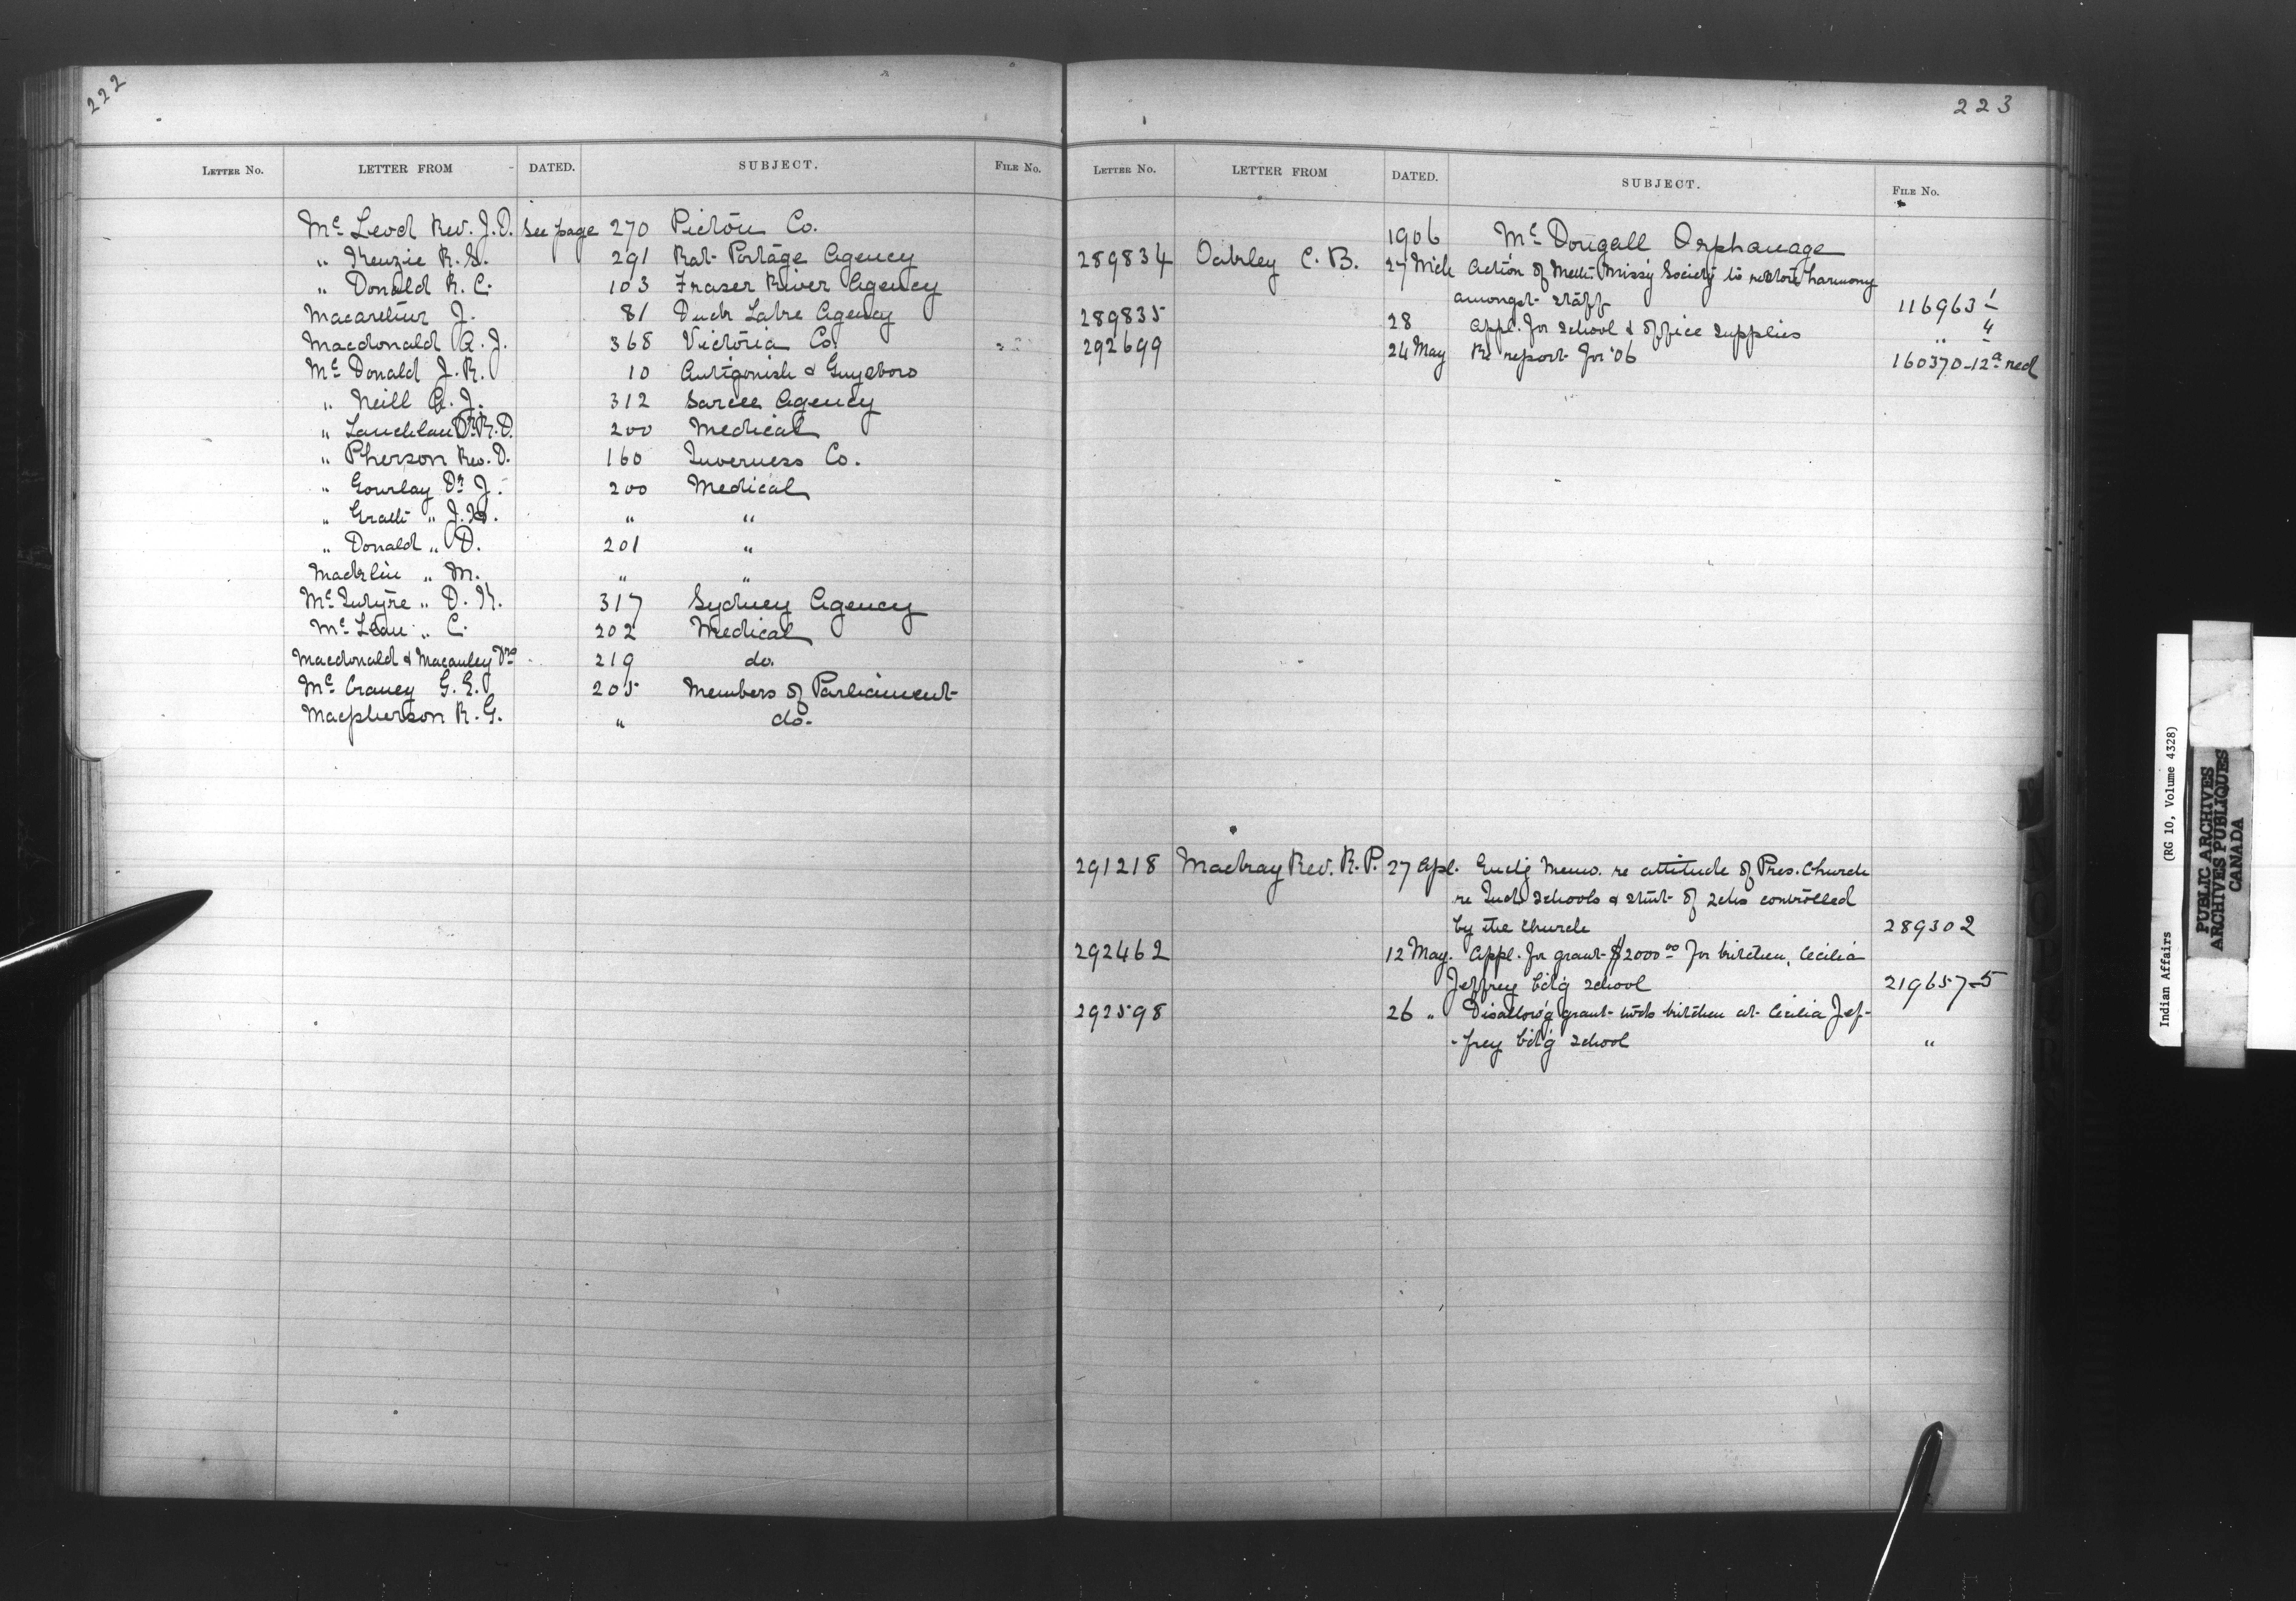 222
LETTER NO. LETTER FROM DATED. SUBJECT. FILE No.
Mc Leod Rev. J. D. See page 270 Pictou Co.
" Kenzie R. S. 291 Rat Portage Agency
" Donald R. C. 103 Fraser River Agency
Macarthur J. 81 Duck Lake Agency
Macdonald A. J. 368 Victoria Co.
Mc Donald J. R. 10 Antigonish & Guysboro
" Neill A. J. 312 Sarcee Agency
" Lauchlan Dr R. D. 200 Medical
" Pherson Rev. D. 160 Inverness Co.
" Gourlay Dr J. 200 Medical
" Grath " J. " "
" Donald " D. 201 "
Macklin " M. " "
Mc Intyre " D. K. 317 Sydney Agency
Mc Lean " C. 202 Medical
Macdonald & Macauley Drs 219 do.
Mc Craney G. E. 205 Members of Parliament
Macpherson R. G. " do.
223
LETTER NO. LETTER FROM DATED. SUBJECT. FILE No.
1906 Mc Dougall Orphanage
289834 Oakley C. B. 27 Mch Action of Meth. Miss'y Society to restore harmony
amongst staff 116963-1
289835 28 Appl. for school & office supplies " - 4
292699 24 May Re report for '06 160370-12a red
291218 Mackay Rev. R. P. 27 Apl. Encl'g Memo. re attitude of Pres. Church
re Ind. Schools & stmt of Schs controlled
by the Church 289302
292462 12 May. Appl. for grant $2000 00 for kitchen, Cecilia
Jeffrey bd'g school 219657-5
292598 26 " Disallow'g grant twds kitchen at Cecilia Jef-
-frey bd'g school "
Indian Affairs (RG 10, Volume 4328)
PUBLIC ARCHIVES
ARCHIVES PUBLIQUES
CANADA